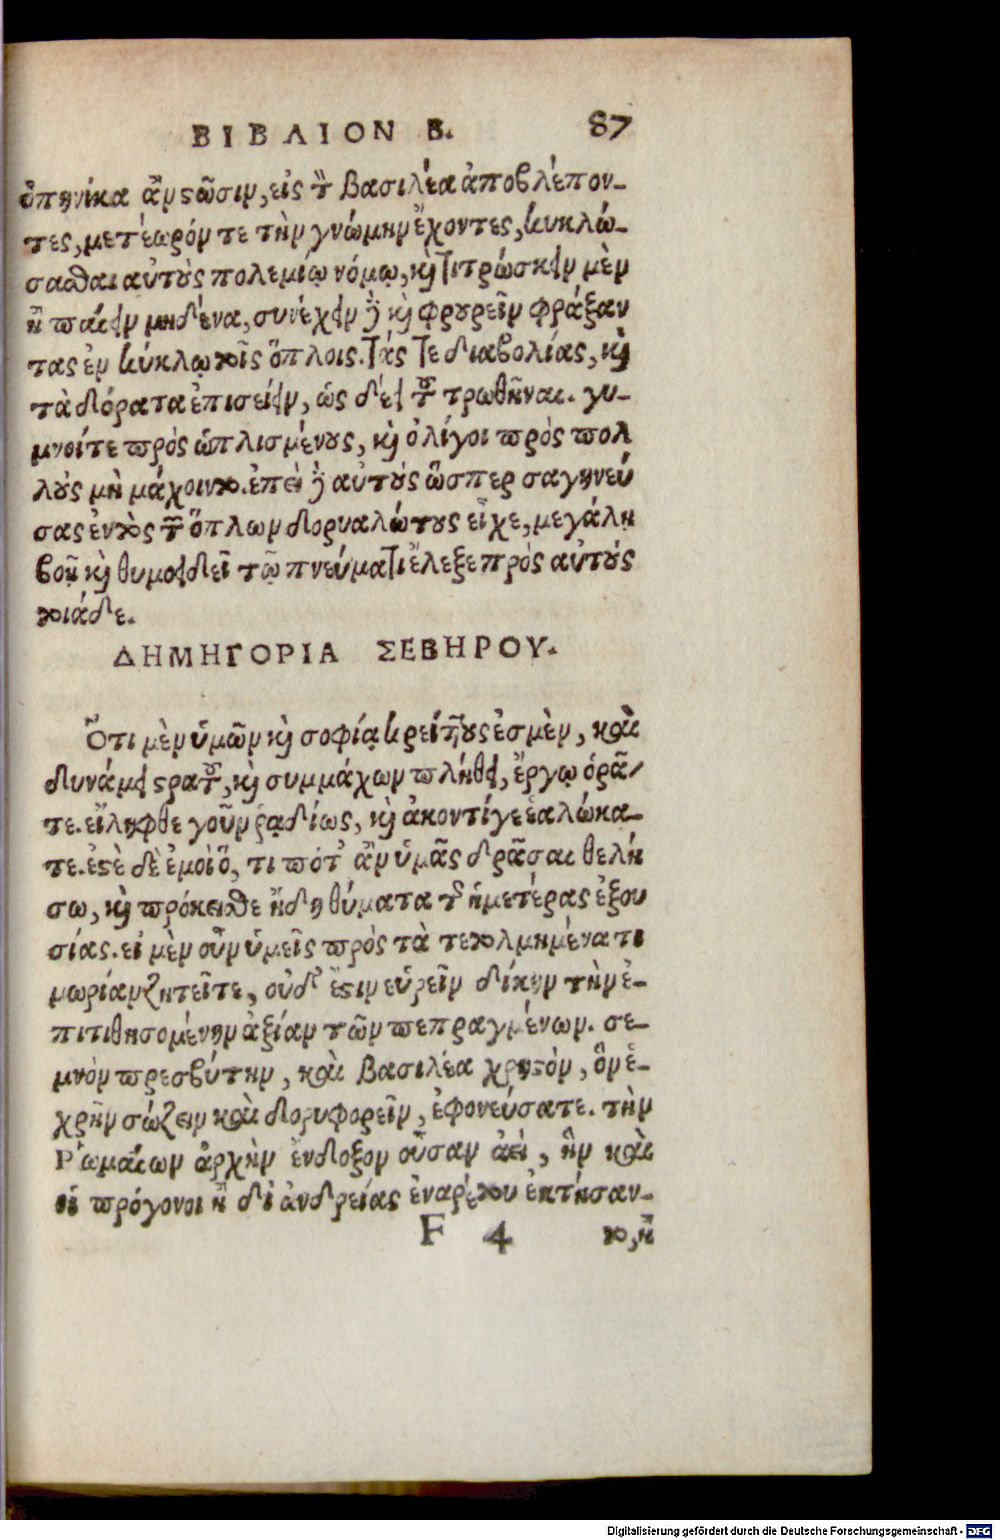 ΒΙΒΛΙΟΝ Β. 87
ὁπηνίκα ἂν στῶσιν, εἰς τὸν βασιλέα ἀποβλέπον-
τες, μετέωρόν τε τὴν γνώμην ἔχοντες, κυκλώ-
σασθαι αὐτοὺς πολεμίῳ νόμῳ, καὶ τιτρώσκειν μὲν
ἢ παίειν μηδένα, συνέχειν δὲ καὶ φρουρεῖν φράξαν
τας ἐν κύκλῳ τοῖς ὅπλοις. τάς τε διαβολίας, καὶ
τὰ δόρατα ἐπισείειν, ὡς δέει τοῦ τρωθῆναι. γυ-
μνοίτε πρὸς ὡπλισμένους, καὶ ὀλίγοι πρὸς πολ
λοὺς μὴ μάχοιντο. ἐπεὶ δὲ αὐτοὺς ὥσπερ σαγηνεύ
σας ἐντὸς τῶν ὅπλων δορυαλώτους εἶχε, μεγάλῃ
βοῇ καὶ θυμοειδεῖ τῷ πνεύματι ἔλεξε πρὸς αὐτούς
τοιάδε.
ΔΗΜΗΓΟΡΙΑ ΣΕΒΗΡΟΥ.
Ὅτι μὲν ὑμῶν καὶ σοφίᾳ κρείττους ἐσμὲν, καὶ
δυνάμει στρατοῦ, καὶ συμμάχων πλήθει, ἔργῳ ὁρᾶ-
τε. εἴληφθε γοῦν ῥᾳδίως, καὶ ἀκοντίγε ἑαλώκα-
τε. ἐστὲ δὲ ἐμοὶ ὅ, τι πότ' ἂν ὑμᾶς δρᾶσαι θελή
σω, καὶ πρόκεισθε ἤδη θύματα τῆς ἡμετέρας ἐξου
σίας. εἰ μὲν οὖν ὑμεῖς πρὸς τὰ τετολμημένα τι
μωρίαν ζητεῖτε, οὐδ' ἔστιν εὑρεῖν δίκην τὴν ἐ-
πιτιθησομένην ἀξίαν τῶν πεπραγμένων. σε-
μνὸν πρεσβύτην, καὶ βασιλέα χρηστὸν, ὃν ἐ-
χρῆν σώζειν καὶ δορυφορεῖν, ἐφονεύσατε. τὴν
Ῥωμαίων ἀρχὴν ἔνδοξον οὖσαν ἀεὶ, ἣν καὶ
οἱ πρόγονοι ἢ δι' ἀνδρείας ἐναρέτου ἐκτήσαν-
F 4 το, ἢ
Digitalisierung gefördert durch die Deutsche Forschungsgemeinschaft - DFG